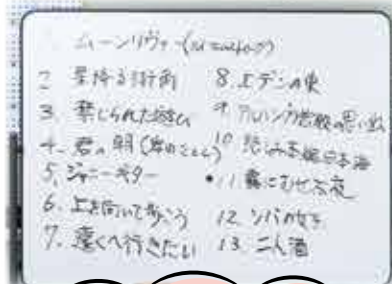 1. ムーンリヴァー
2 星降る街角
3. 禁じられた遊び
4. 君の朝
5. ジャニーギター
6. 上を向いて歩こう
7. 遠くへ行きたい
8. エデンの東
9. アルハンブラ宮殿の思い出
10 悲しみ本線日本海
11. 霧にむせぶ夜
12. シバの女王
13. 二人酒